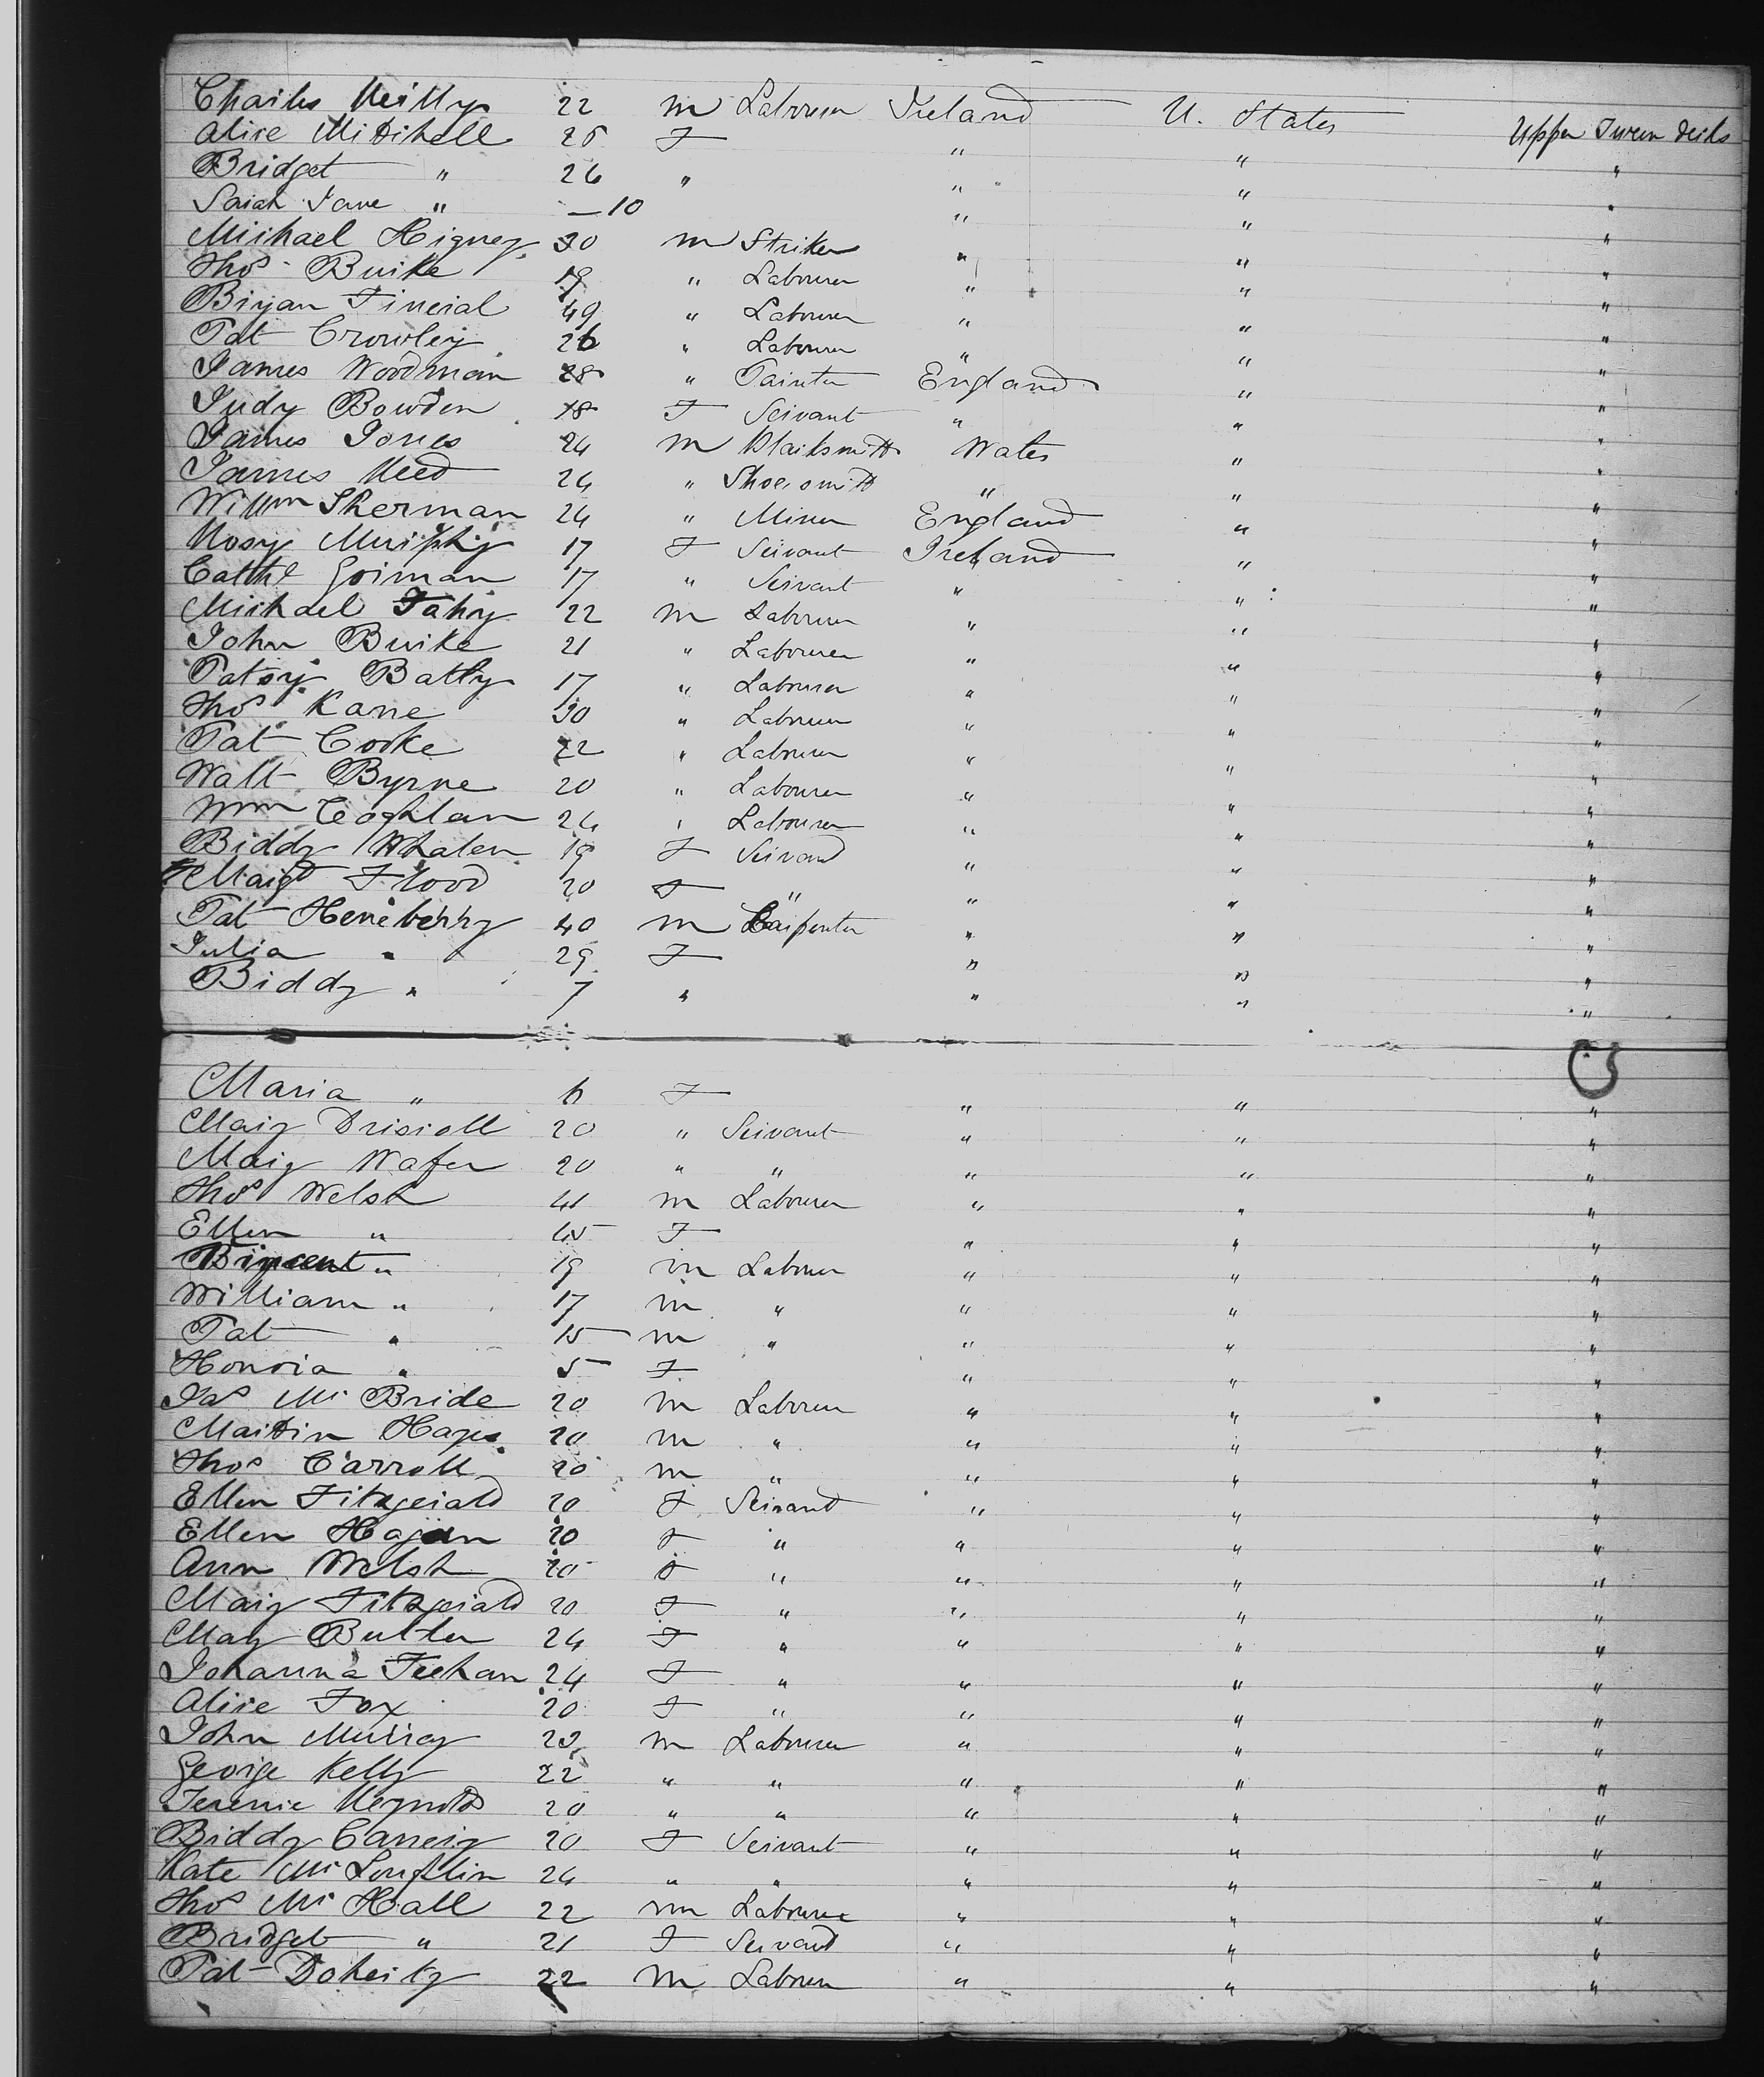 Charles Reilly 22 m Labourer Ireland U. States Upper Tween Decks
Alice Mitchell 25 F " " "
Bridget " 26 " " " "
Sarah Jane " — 10 " " "
Michael Higney 30 m Striker " " "
Thos Burke 19 " Labourer " " "
Bryan Fineral 49 " Labourer " " "
Pat Crowley 26 " Labourer " " "
James Woodman 28 " Painter England " "
Judy Bowden 18 F Servant " " "
James Jones 24 m Blacksmith Wales " "
James Reed 24 " Shoesmith " " "
Willm Sherman 24 " Miner England " "
Rosy Murphy 17 F Servant Ireland " "
Cathe Gorman 17 " Servant " " "
Michael Fahy 22 m Labourer " " "
John Burke 21 " Labourer " " "
Patsy Batty 17 " Labourer " " "
Thos Kane 30 " Labourer " " "
Pat Cooke 22 " Labourer " " "
Walt Byrne 20 " Labourer " " "
Wm Coghlan 24 " Labourer " " "
Biddy Whalen 19 F Servant " " "
Margt Flood 20 F " " " "
Pat Heneberry 40 m Carpenter " " "
Julia " 29 F " " "
Biddy " 7 " " " "
Maria " 6 F " " "
Mary Driscoll 20 " Servant " " "
Mary Wafer 20 " " " " "
Thos Welsh 41 m Labourer " " "
Ellen " 45 F " " "
" 19 m Labourer " " "
William " 17 m " " " "
Pat " 15 m " " " "
Honora " 5 F " " "
Jas Mc Bride 20 m Labourer " " "
Martin Hayes 20 m " " " "
Thos Carroll 20 m " " " "
Ellen Fitzgerald 20 F Servant " " "
Ellen Hagan 20 F " " " "
Ann Welsh 20 F " " " "
Mary Fitzgerald 20 F " " " "
May Butler 24 F " " " "
Johanna Feehan 24 F " " " "
Alice Fox 20 F " " " "
John Murray 23 m Labourer " " "
George Kelly 22 " " " " "
Terence Reynolds 20 " " " " "
Biddy 20 F Servant " " "
Kate Mc Loughlin 24 " " " " "
Thos Mc Hall 22 m Labourer " " "
Bridget " 21 F Servant " " "
Pat Doherty 22 m Labourer " " "